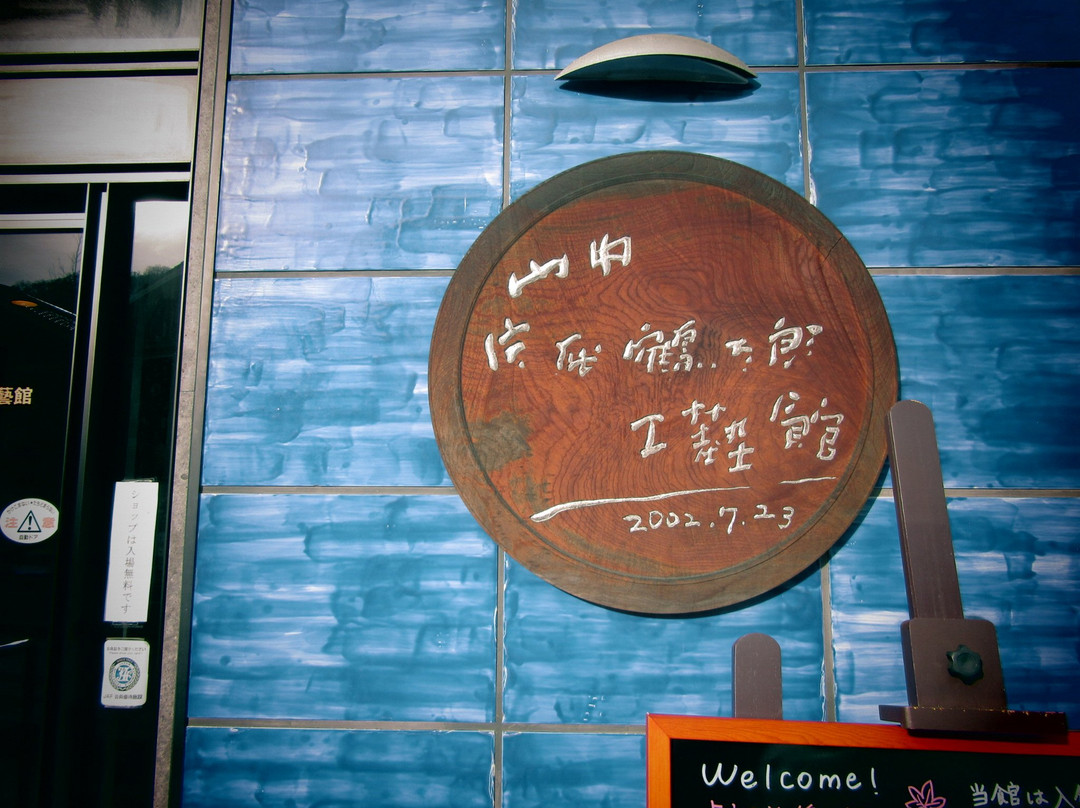 山中
片岡鶴太郎
工藝館
2002.7.23
藝館
注意
自動ドア
ショップは入場無料です
Welcome!
当館は入